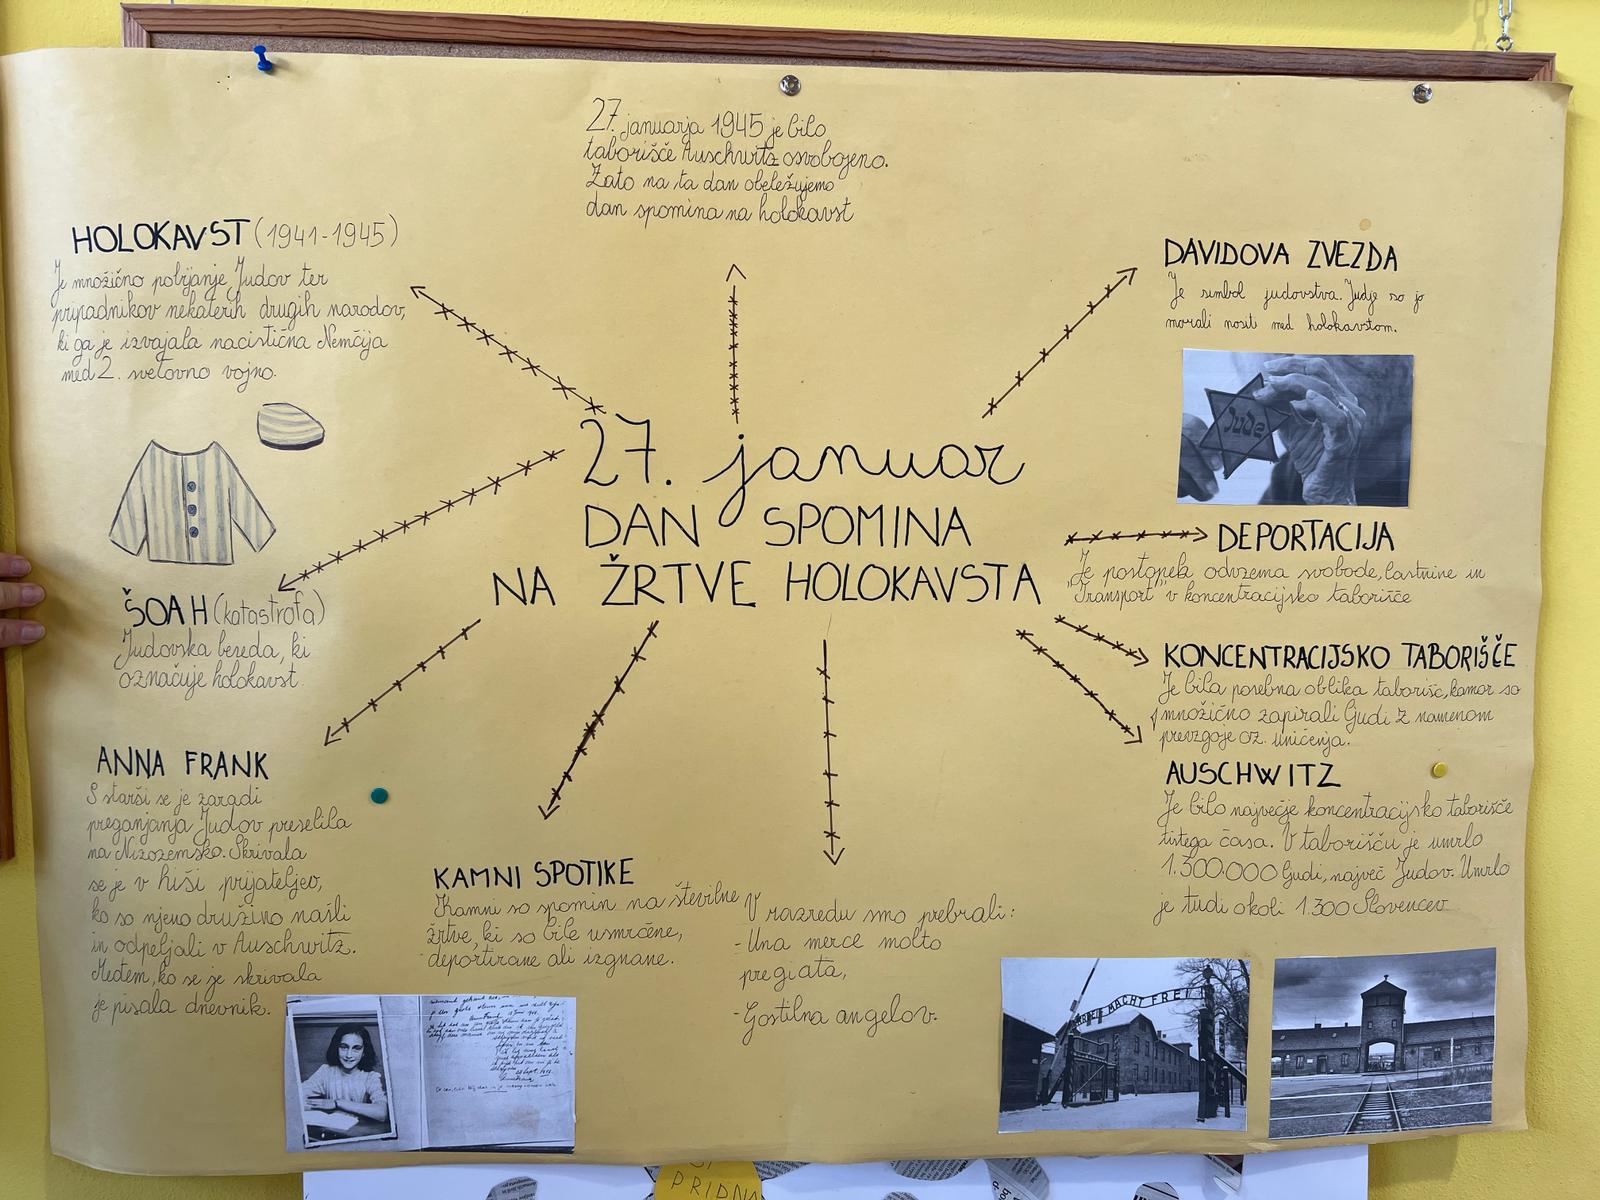 27. januarja 1945 je bilo
taborišče Auschwitz osvobojeno.
Zato na ta dan obeležujemo
dan spomina na holokavst
HOLOKAVST (1941-1945)
Je množično pobijanje Judov ter
pripadnikov nekaterih drugih narodov,
ki ga je izvajala nacistična Nemčija
med 2. svetovno vojno.
DAVIDOVA ZVEZDA
Je simbol judovstva. Judje so jo
morali nositi med holokavstom.
Jude
27. januar
DAN SPOMINA
NA ŽRTVE HOLOKAVSTA
DEPORTACIJA
Je postopek odvzema svobode, lastnine in
"Transport" v koncentracijsko taborišče
ŠOAH (katastrofa)
Judovska beseda, ki
označuje holokavst.
KONCENTRACIJSKO TABORIŠČE
Je bila posebna oblika taborišč, kamor so
množično zapirali ljudi z namenom
prevzgoje oz. uničenja.
ANNA FRANK
S starši se je zaradi
preganjanja Judov preselila
na Nizozemsko. Skrivala
se je v hiši prijateljev,
ko so njeno družino našli
in odpeljali v Auschwitz.
Medtem, ko se je skrivala
je pisala dnevnik.
AUSCHWITZ
Je bilo največje koncentracijsko taborišče
tistega časa. V taborišču je umrlo
1.300.000 ljudi, največ Judov. Umrlo
je tudi okoli 1.300 Slovencev
KAMNI SPOTIKE
Kamni so spomin na številne
žrtve, ki so bile usmrčene,
deportirane ali izgnane.
V razredu smo prebrali:
- Una merce molto
pregiata,
- Gostilna angelov.
ARBEIT MACHT FREI
PRIDNA